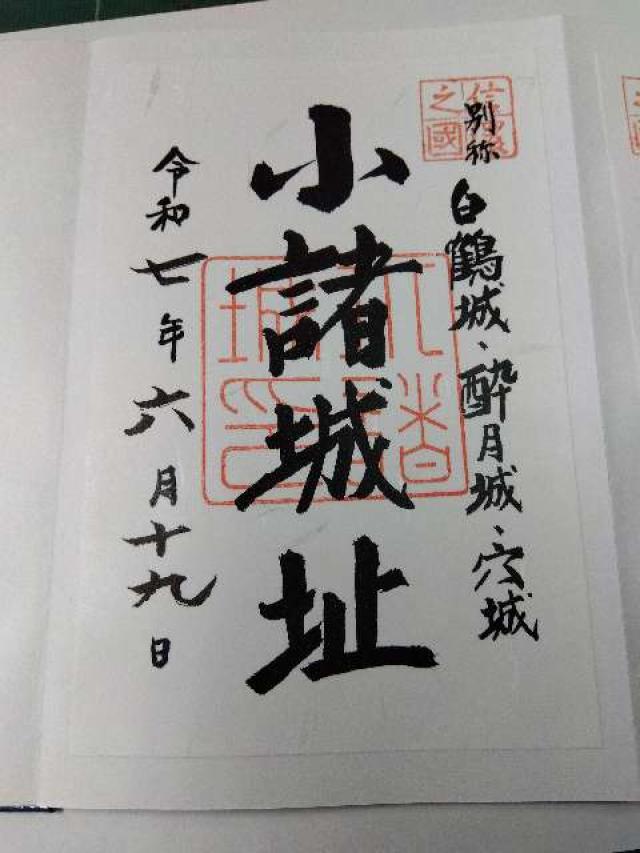 別称 白鶴城、酔月城、穴城
信濃之國
小諸城址
小諸城印
令和七年六月十九日